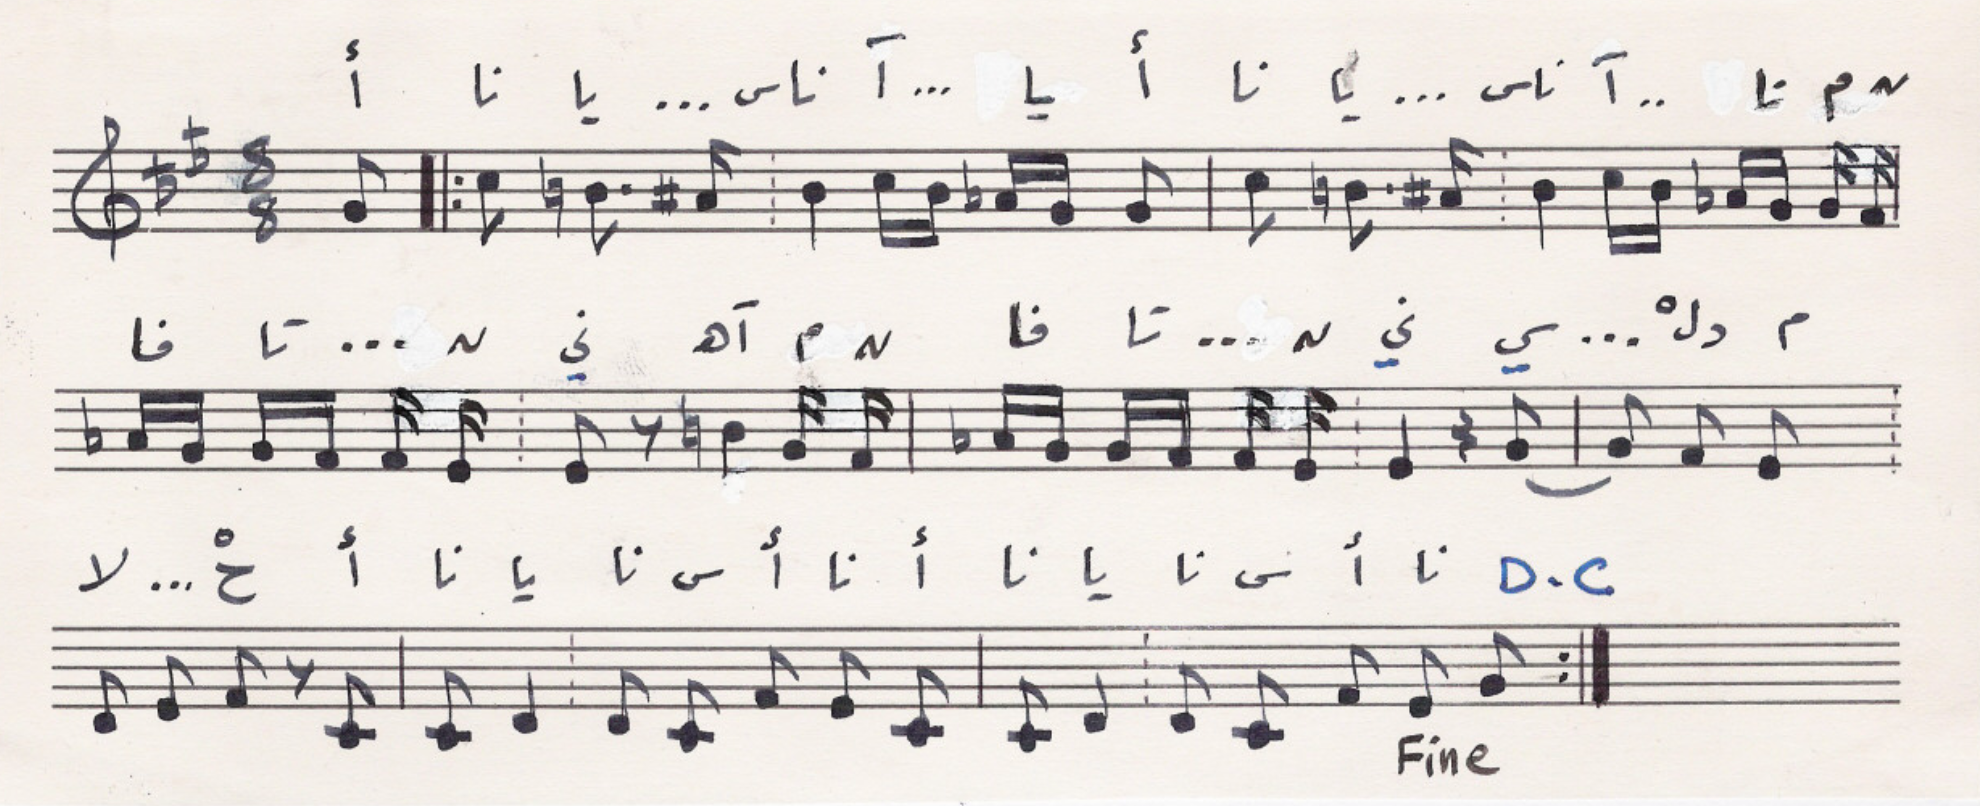 أ نا يا ... ناس آ ... يا أ نا يا ... ناس آ .. نا م ن
فا تا ... ن ني آه م ن فا تا ... ن ني سي ... دلْ م
لا ... حْ أ نا يا نا س أ نا أ نا يا نا س أ نا D.C
Fine